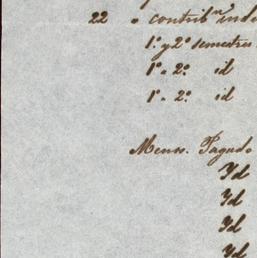 22 " contrib.n inda
1.º y 2.º semestres
1.º " 2.º id
1.º " 2.º id
Mens. Pagado
Yd
Yd
Yd
Yd